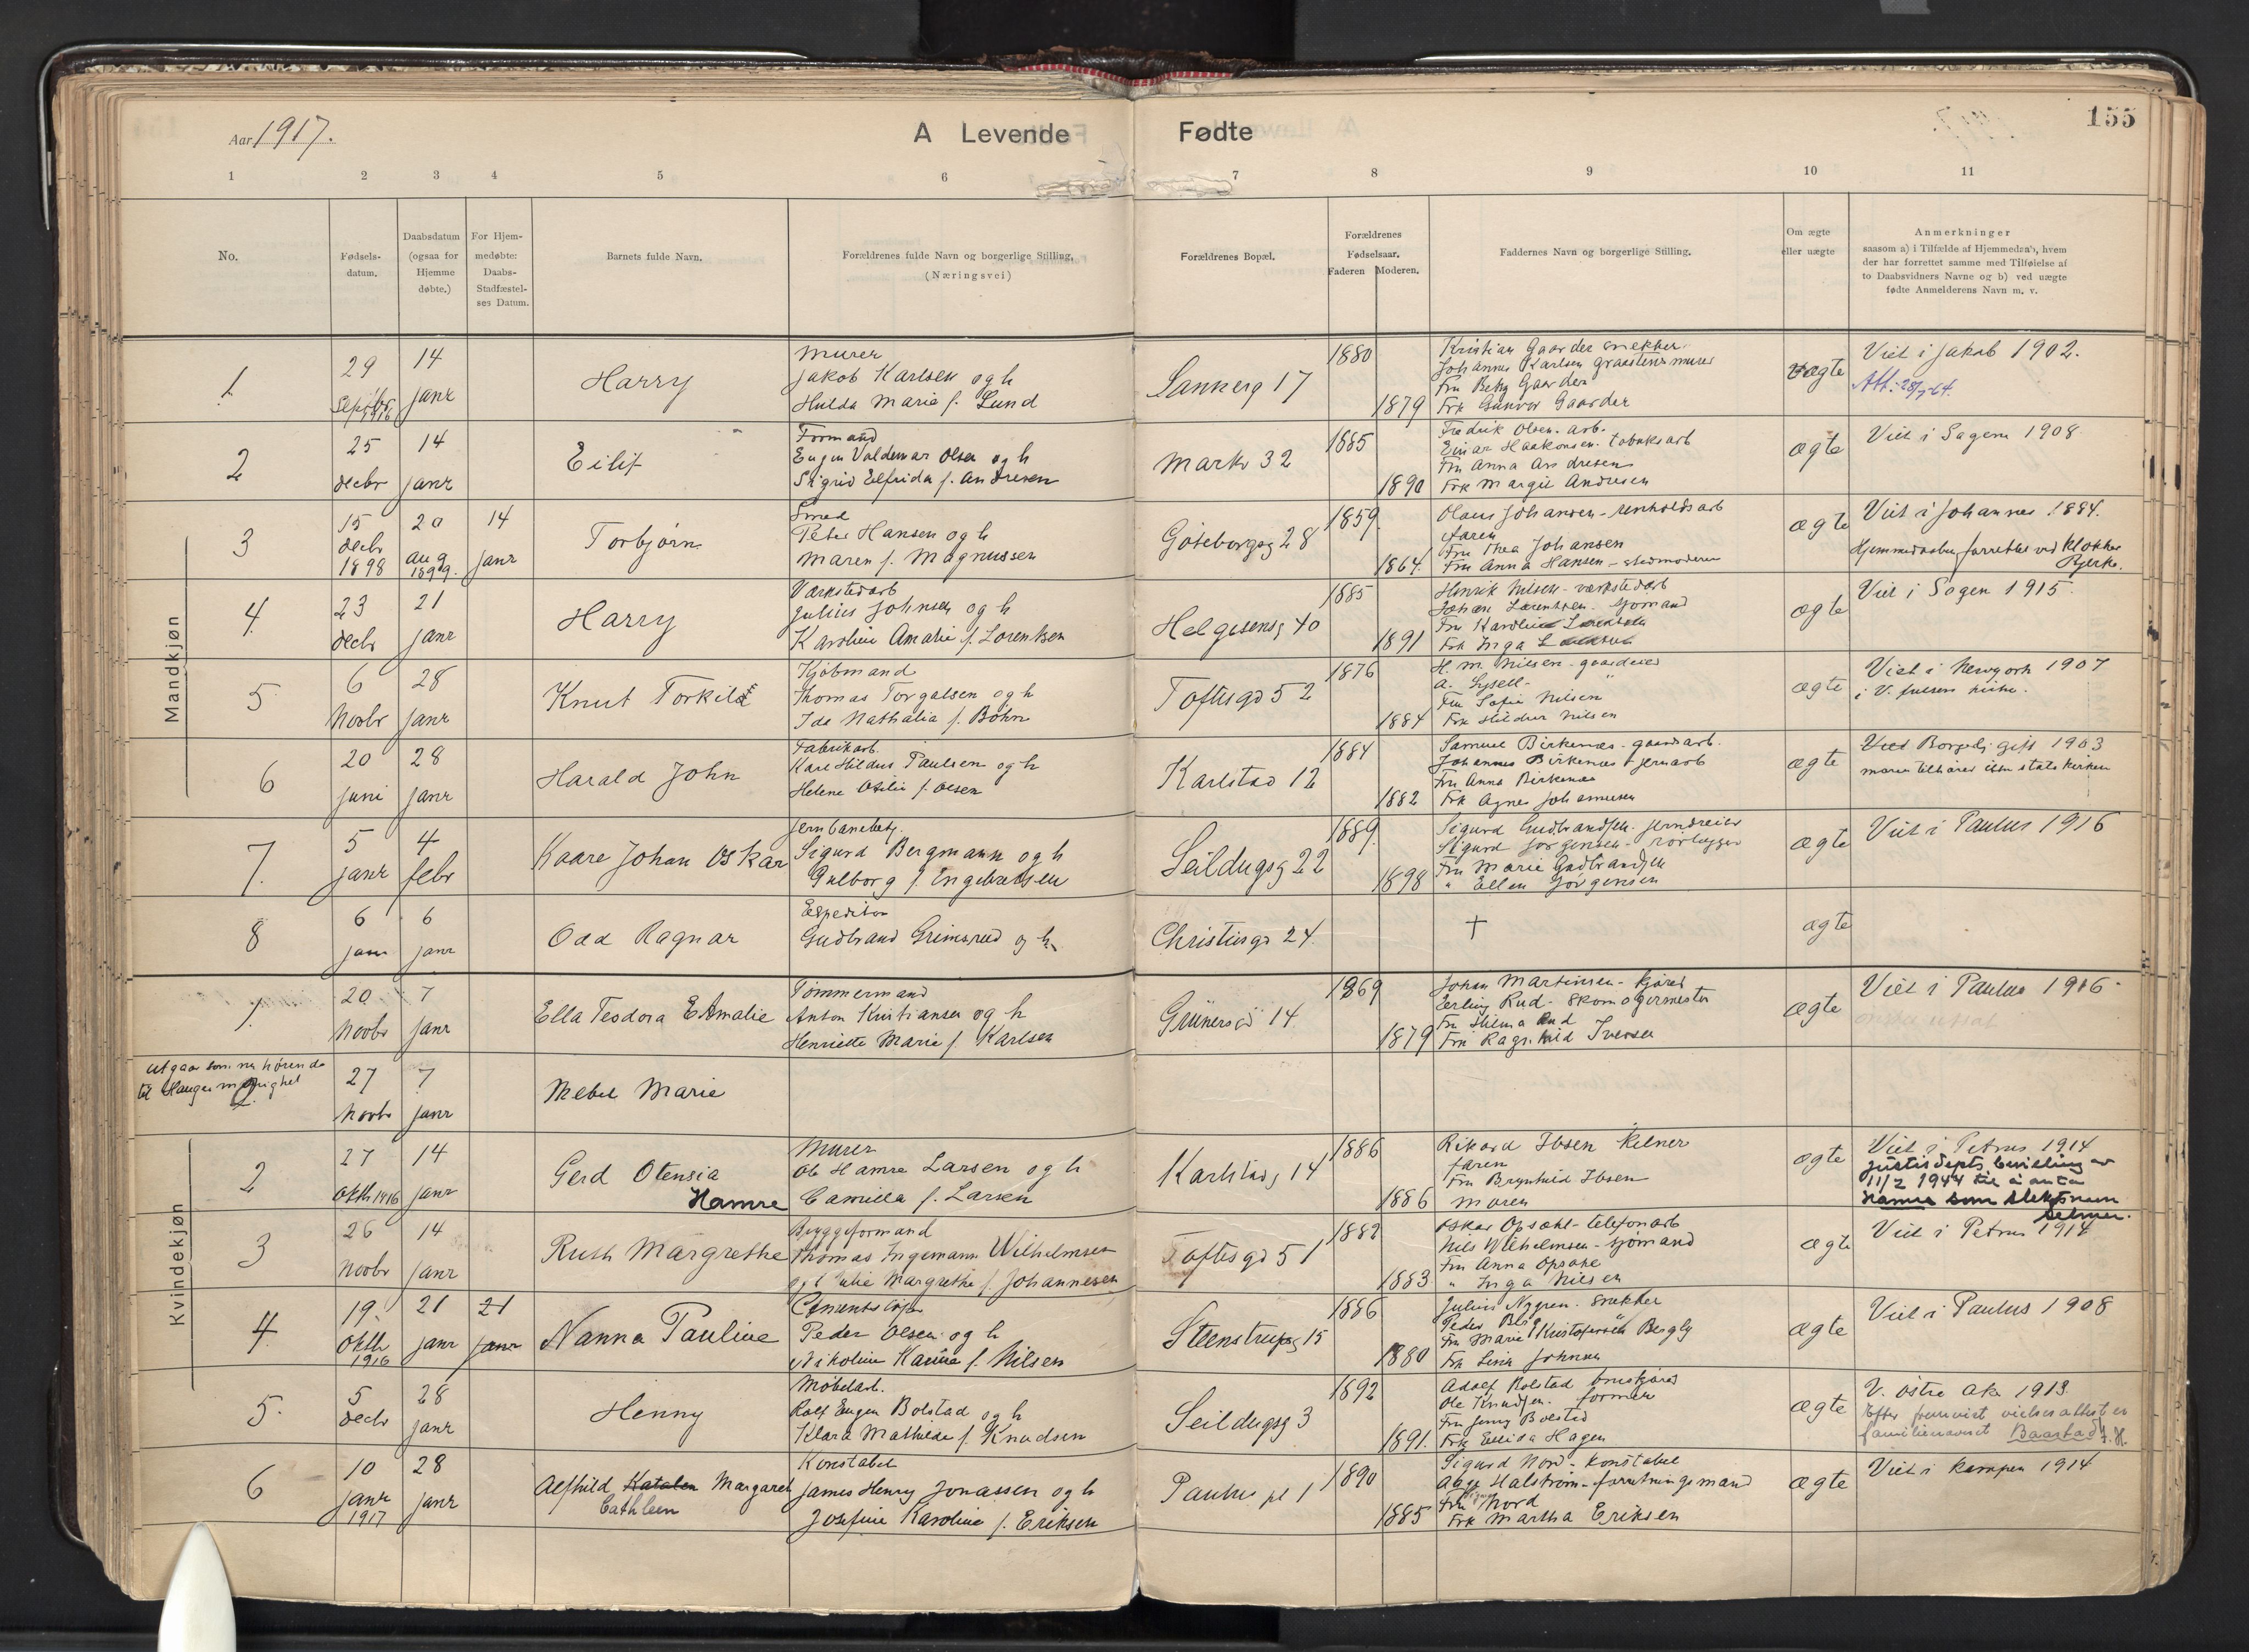 155
Aar 1917.
A Levende Fødte
1 2 3 4 5 6 7 8 9 10 11
No.
Fødsels-
datum.
Daabsdatum
(ogsaa for
Hjemme
døbte.)
For Hjem-
medøbte:
Daabs-
Stadfæstel-
ses Datum.
Barnets fulde Navn.
Forældrenes fulde Navn og borgerlige Stilling.
(Næringsvei)
Forældrenes Bopæl.
Forældrenes
Fødselsaar.
Faderen Moderen.
Faddernes Navn og borgerlige Stilling.
Om ægte
eller uægte
Anmerkninger
saasom a) i Tilfælde af Hjemmedaab, hvem
der har forrettet samme med Tilføielse af
to Daabsvidners Navne og b) ved uægte
fødte Anmelderens Navn m. v.
Mandkjøn
1
29
Septbr
1916
14
janr
Harry
Murer
Jakob Karlsen og h
Hulda Marie f. Lund
Sannerg 17
1880
1879
Kristian Gaarder snekker
Johannes Karlsen graastensmurer
Fru Betzy Gaarder
Frk Gunvor Gaarder
ægte
Viet i Jakob 1902.
2
25
decbr
14
janr
Eilif
Formand
Eugen Valdemar Olsen og h
Sigrid Elfrida f. Andresen
Markv 32
1885
1890
Fredrik Olsen. arb.
Einar Haakonsen. tobaksarb
Fru Anna Andresen
Frk Margit Andresen
ægte
Viet i Sagene 1908
3
15
decbr
1898
20
aug
1899.
14
janr
Torbjørn
Smed
Peter Hansen og h
Maren f. Magnussen
Gøteborgsg 28
1859
1864.
Olaus Johansen - renholdsarb
Faren
Fru Thea Johansen
Fru Anna Hansen - stedmoderen
ægte
Viet i Johannes 1884.
Hjemmedaaben forrettet ved klokker
Bjerke.
4
23
decbr
21
janr
Harry
Værkstedarb
Julius Johnsen og h
Karoline Amalie f. Lorentsen
Helgesensg 40
1885
1891
Henrik Nilsen - værkstedarb
Johan Lorentsen. sjømand
Fru Karoline Lorentsen
Frk Inga
ægte
Viet i Sagen 1915.
5
6
Novbr
28
janr
Knut Torkild
Kjøbmand
Thomas Torgalsen og h
Ida Nathalia f. Bøhn
Toftesgd 52
1876
1884
H. M. Nilsen - gaardeier
A. Sysell - "
Fru Sofie Nilsen
Frk Hildur Nilsen
ægte
Viet i Newyork 1907
6
20
juni
28
janr
Harald John
Fabrikarb.
Karl Hildus Paulsen og h
Helene Otilie f. Olsen
Karlstad 12
1884
1882
Samuel Birkenæs - gaardsarb.
Johannes Birkenæs - jernarb
Fru Anna Birkenæs
Frk Agnes Johannesen
ægte
Viet Borgerlig gift 1903
moren tilhører ikke statskirken
7.
5
janr
4
febr
Kaare Johan Oskar
Jernbanebetj.
Sigurd Bergmann og h
Gulborg f. Engebretsen
Seildugsg 22
1889.
1898
Sigurd Gudbrandsen. jerndreier
Sigurd Jørgensen - rørlægger
Fru Marie Gudbrandsen
" Ellen Jørgensen
ægte
Viet i Paulus 1916
8
6
janr
6
janr
Odd Ragnar
Espeditør
Gudbrand Grimsrud og h.
Christiesgd 24.
†
ægte
Kvindekjøn
1.
20
Novbr
7
janr
Ella Teodora Amalie
Tømmermand
Anton Kristiansen og h
Henriette Marie f. Karlsen
Grünersgd 14.
1869
1879
Johan Martinsen - kjører
Erling Rud - Skomagermester
Fru Hilma Rud
Frk Ragnhild Iversen
ægte
Viet i Paulus 1916.
utgaar som nu hørende
til Hauges menighet
2.
27
Novbr
7
janr
Mebel Marie
2
27
Oktb 1916
14
janr
Gerd Otensia
Hamre
Murer
Ole Hamre Larsen og h
Camilla f. Larsen
Karlstadg 14
1886
1886
Rikard Ibsen kelner
faren
Fru Brynhild Ibsen
moren
ægte
Viet i Petrus 1914
Justisdepts bevilling av
11/2 1944 til å anta
Hamre som slektsnavn
3
26
Novbr
14
janr
Ruth Margrethe
Byggeformand
Thomas Ingemann Wilhelmsen
og h Julie Margrethe f. Johannesen
Toftesgd 51
1882
1883
Oskar Opsahl - telefonarb
Nils Wilhelmsen - sjømand
Fru Anna Opsahl
" Inga Nilsen
ægte
Viet i Petrus 1914
4.
19.
Oktbr
1916
21
janr
21
janr
Nanna Pauline
Peder Olsen og h
Nikoline Karine f. Nilsen
Steenstrupsg 15
1886
1880
Julius Nygren. snekker
Fru Marie Kristofersen Bergly
Frk Lina Johnsen
ægte
Viet i Paulus 1908
5.
5
decbr
28
janr
Henny
Møbelarb.
Rolf Eugen Bolstad og h
Klara Mathilde f. Knudsen
Seildugsg 3
1892
1891.
Adolf Bolstad bruskjører
Ole Knudsen. former
Fru Jenny Bolstad
Frk Ellida Hagen
ægte
V. Østre Aker 1913.
Efter fremvist vielsesattest er
familienavnet Baastad J.H.
6
10
janr
1917
28
janr
Alfhild Katalen Margaret
Cathleen
Konstabel
James Henry Jonassen og h
Josefine Karoline f. Eriksen
Paulus pl 1
1890
1885
Sigurd Nord - konstabel
Aage Halstrøm - forretningsmand
Fru Nord
Frk Martha Eriksen
ægte
Viet i Kampen 1914